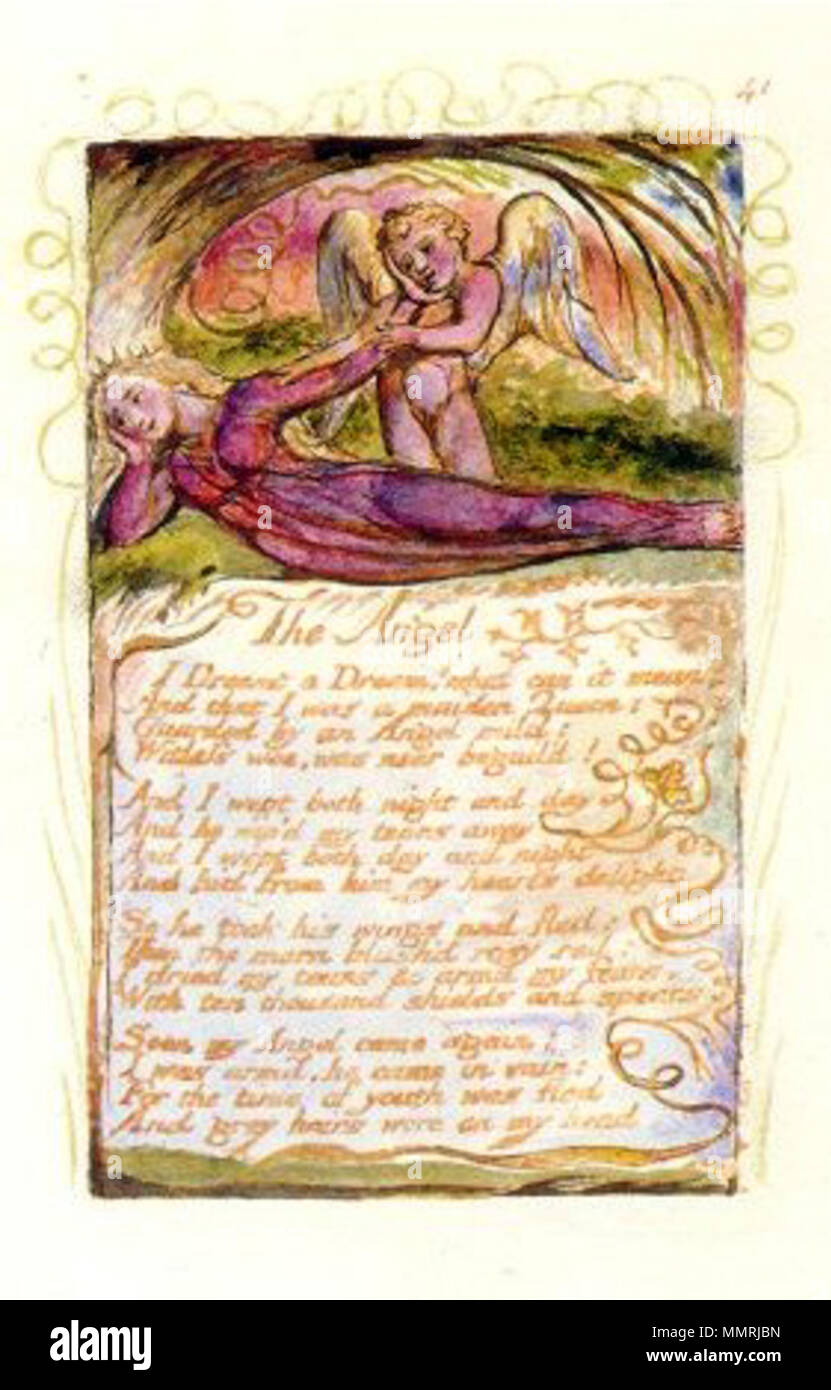 41
The Angel
I Dreamt a Dream! what can it mean?
And that I was a maiden Queen:
Guarded by an Angel mild;
Witless woe, was neer beguil'd!
And I wept both night and day
And he wip'd my tears away
And I wept both day and night
And hid from him my hearts delight
So he took his wings and fled:
Then the morn blush'd rosy red:
I dried my tears & armd my fears,
With ten thousand shields and spears.
Soon my Angel came again:
I was arm'd, he came in vain:
For the time of youth was fled
And grey hairs were on my head
alamy
Image ID: MMRJBN
www.alamy.com